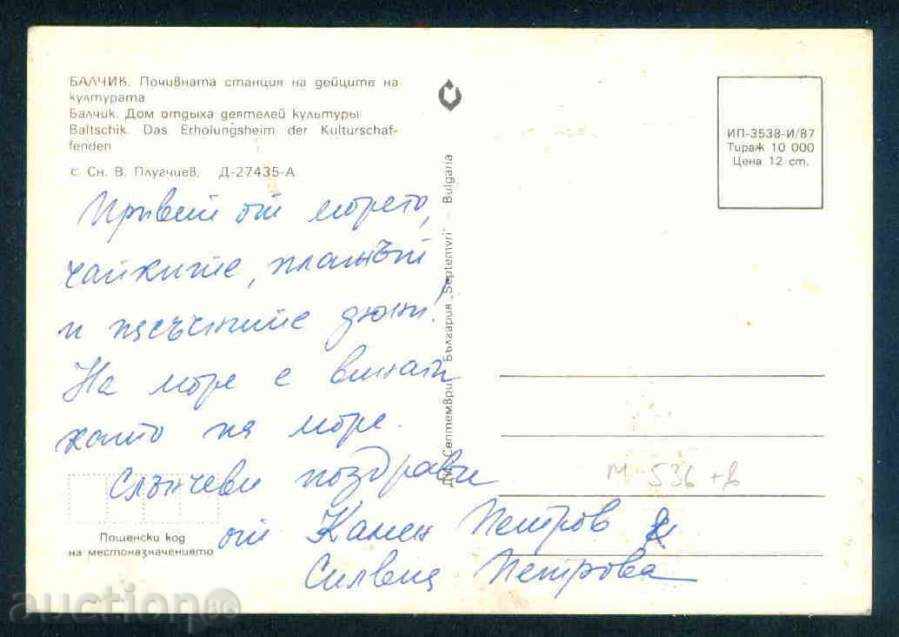 БАЛЧИК. Почивната станция на дейците на
културата
Балчик. Дом отдыха деятелей культуры
Baltschik. Das Erholungsheim der Kulturschaf-
fenden
с Сн. В. Плугчиев, Д-27435-А
ДП „Септември" България „Septemvri" – Bulgaria
ИП-3538-И/87
Тираж 10 000
Цена 12 ст.
Привет от морето,
чайките, плажът
и пясъчните дюни!
На море е винаги
като на море.
Слънчеви поздрави
от Камен Петров и
Силвия Петрова
М-536+в
Пощенски код
на местоназначението
auction